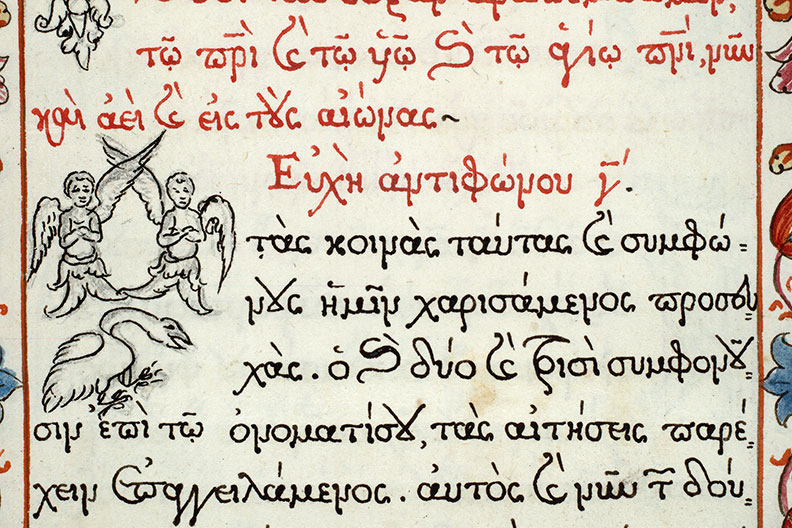 τῶ πρὶ καὶ τῶ υἱῶ καὶ τῶ ἁγίω πνι, νῦν
καὶ ἀεὶ καὶ εἰς τοὺς αἰώνας~
Εὐχὴ ἀντιφώνου γ΄.
τὰς κοινὰς ταύτας καὶ συμφώ=
νους ἡμῖν χαρισάμενος προσευ=
χὰς. ὁ καὶ δύο καὶ τρισὶ συμφονοῦ=
σιν ἐπὶ τῶ ὀνοματίσου, τὰς αἰτήσεις παρέ=
χειν ἐπαγγειλάμενος. αὐτὸς καὶ νῦν τῶν δού=